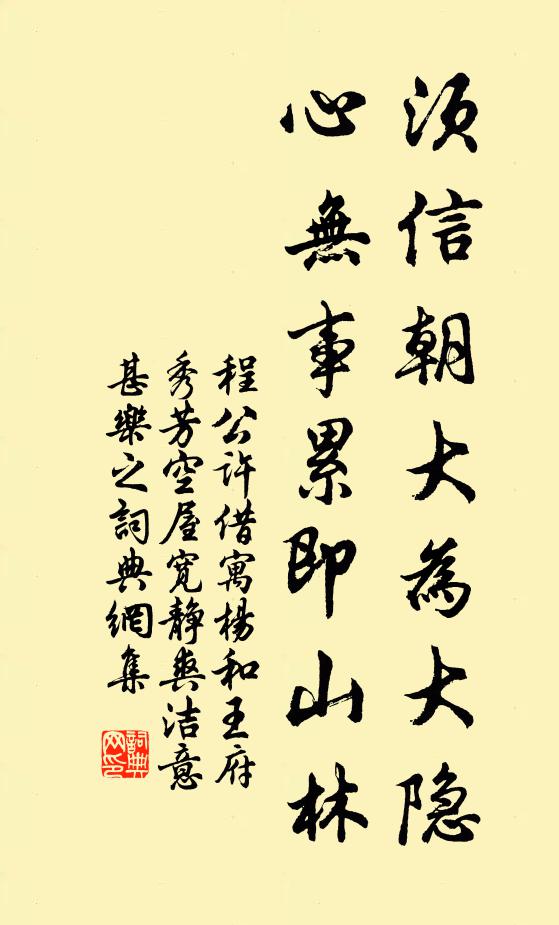 须信朝大為大隐
心無事累即山林
程公许借寓楊和王府
秀芳空屋寛静爽洁意
甚樂之詞典網集
詞典网印